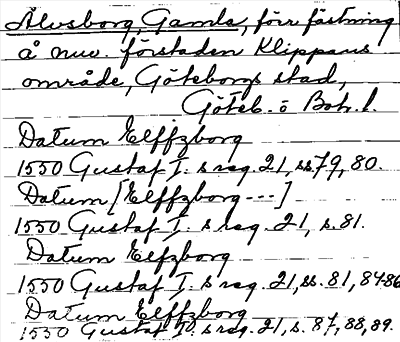 Älvsborg, Gamla, förr fästning
å nuv. förstaden Klippans
område, Göteborgs stad,
Göteb. o Boh. l.
Datum Elffzborg
1550 Gustaf I. s reg. 21, ss 79, 80.
Datum [Elffzborg ---]
1550 Gustaf I. s reg. 21, s. 81.
Datum Elfzborg
1550 Gustaf I. s reg. 21, ss. 81, 84 86
Datum Elffzborg
1550 Gustaf I. s reg. 21, s. 87, 88, 89.